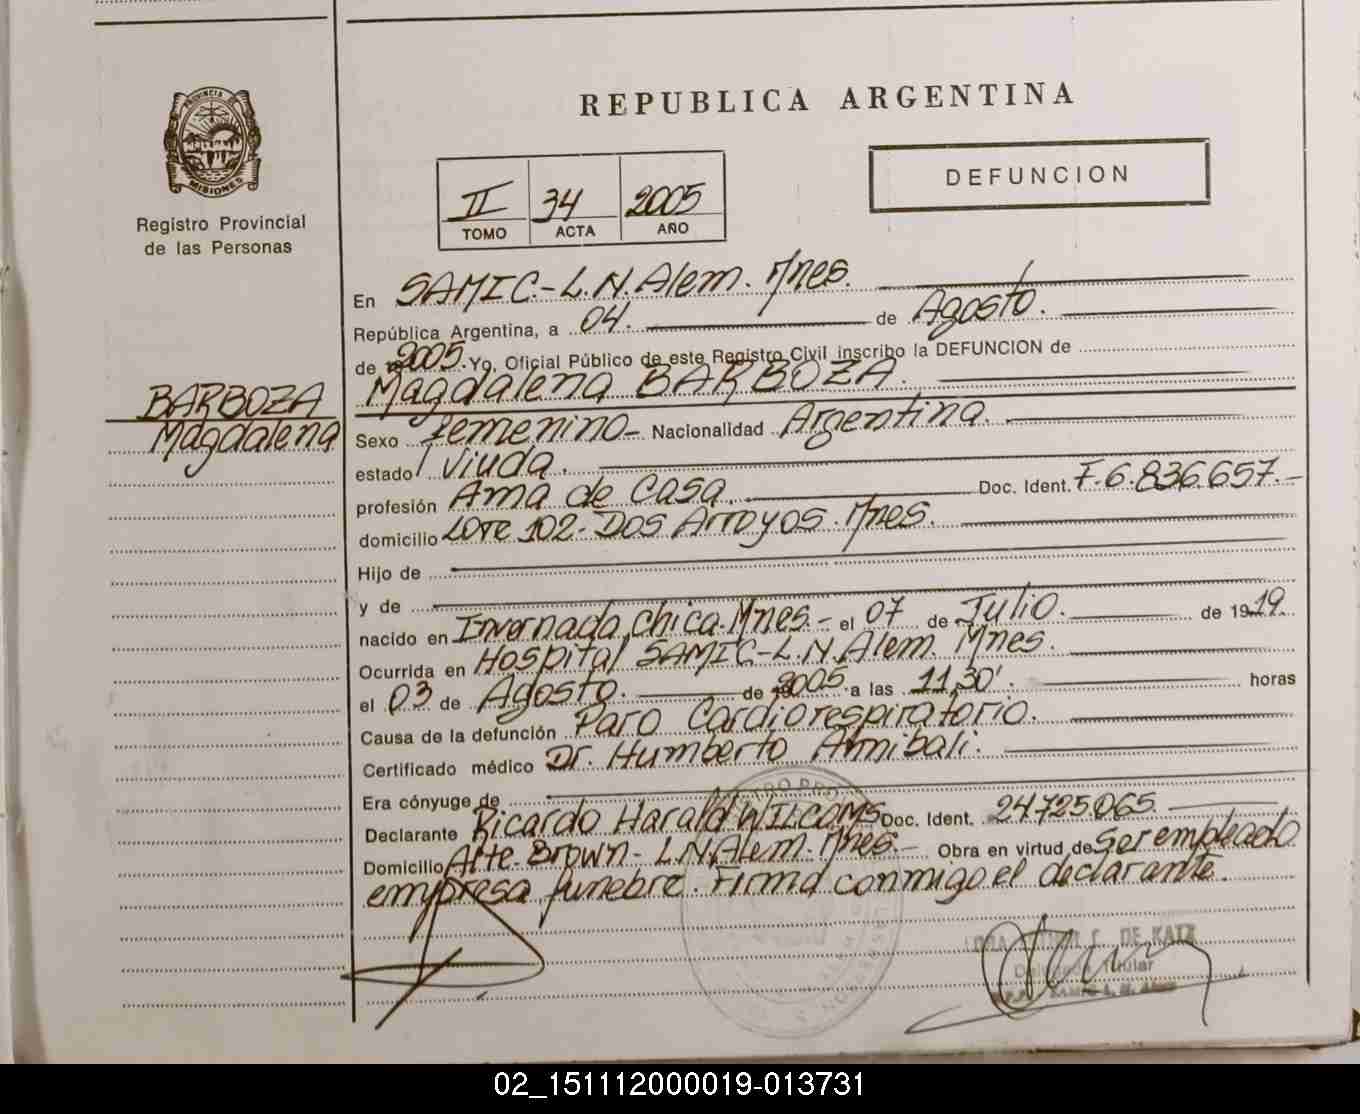 PROVINCIA DE
MISIONES
Registro Provincial
de las Personas
REPUBLICA ARGENTINA
DEFUNCION
II 34 2005
TOMO ACTA AÑO
En SAMIC.-L.N.Alem. Mnes.
República Argentina, a 04. de Agosto.
de 2005. Yo, Oficial Público de este Registro Civil inscribo la DEFUNCION de
BARBOZA
Magdalena
Magdalena BARBOZA.
Sexo femenino- Nacionalidad Argentina.
estado viuda.
profesión Ama de Casa. Doc. Ident. F.6.836.657.-
domicilio Lote 102-Dos Arroyos. Mnes.
Hijo de
y de
nacido en Invernada Chica.Mnes.- el 07 de Julio. de 1919.
Ocurrida en Hospital SAMIC-L.N.Alem. Mnes.
el 03 de Agosto. de 2005 a las 11,30'. horas
Causa de la defunción Paro Cardiorespiratorio.
Certificado médico Dr. Humberto Annibali.
Era cónyuge de
Declarante Ricardo Harald WILCOMS Doc. Ident. 24.725.065
Domicilio Alte. Brown- L.N.Alem. Mnes.- Obra en virtud de ser empleado
empresa funebre. Firma conmigo el declarante.
DE KATZ
Titular
02_151112000019-013731